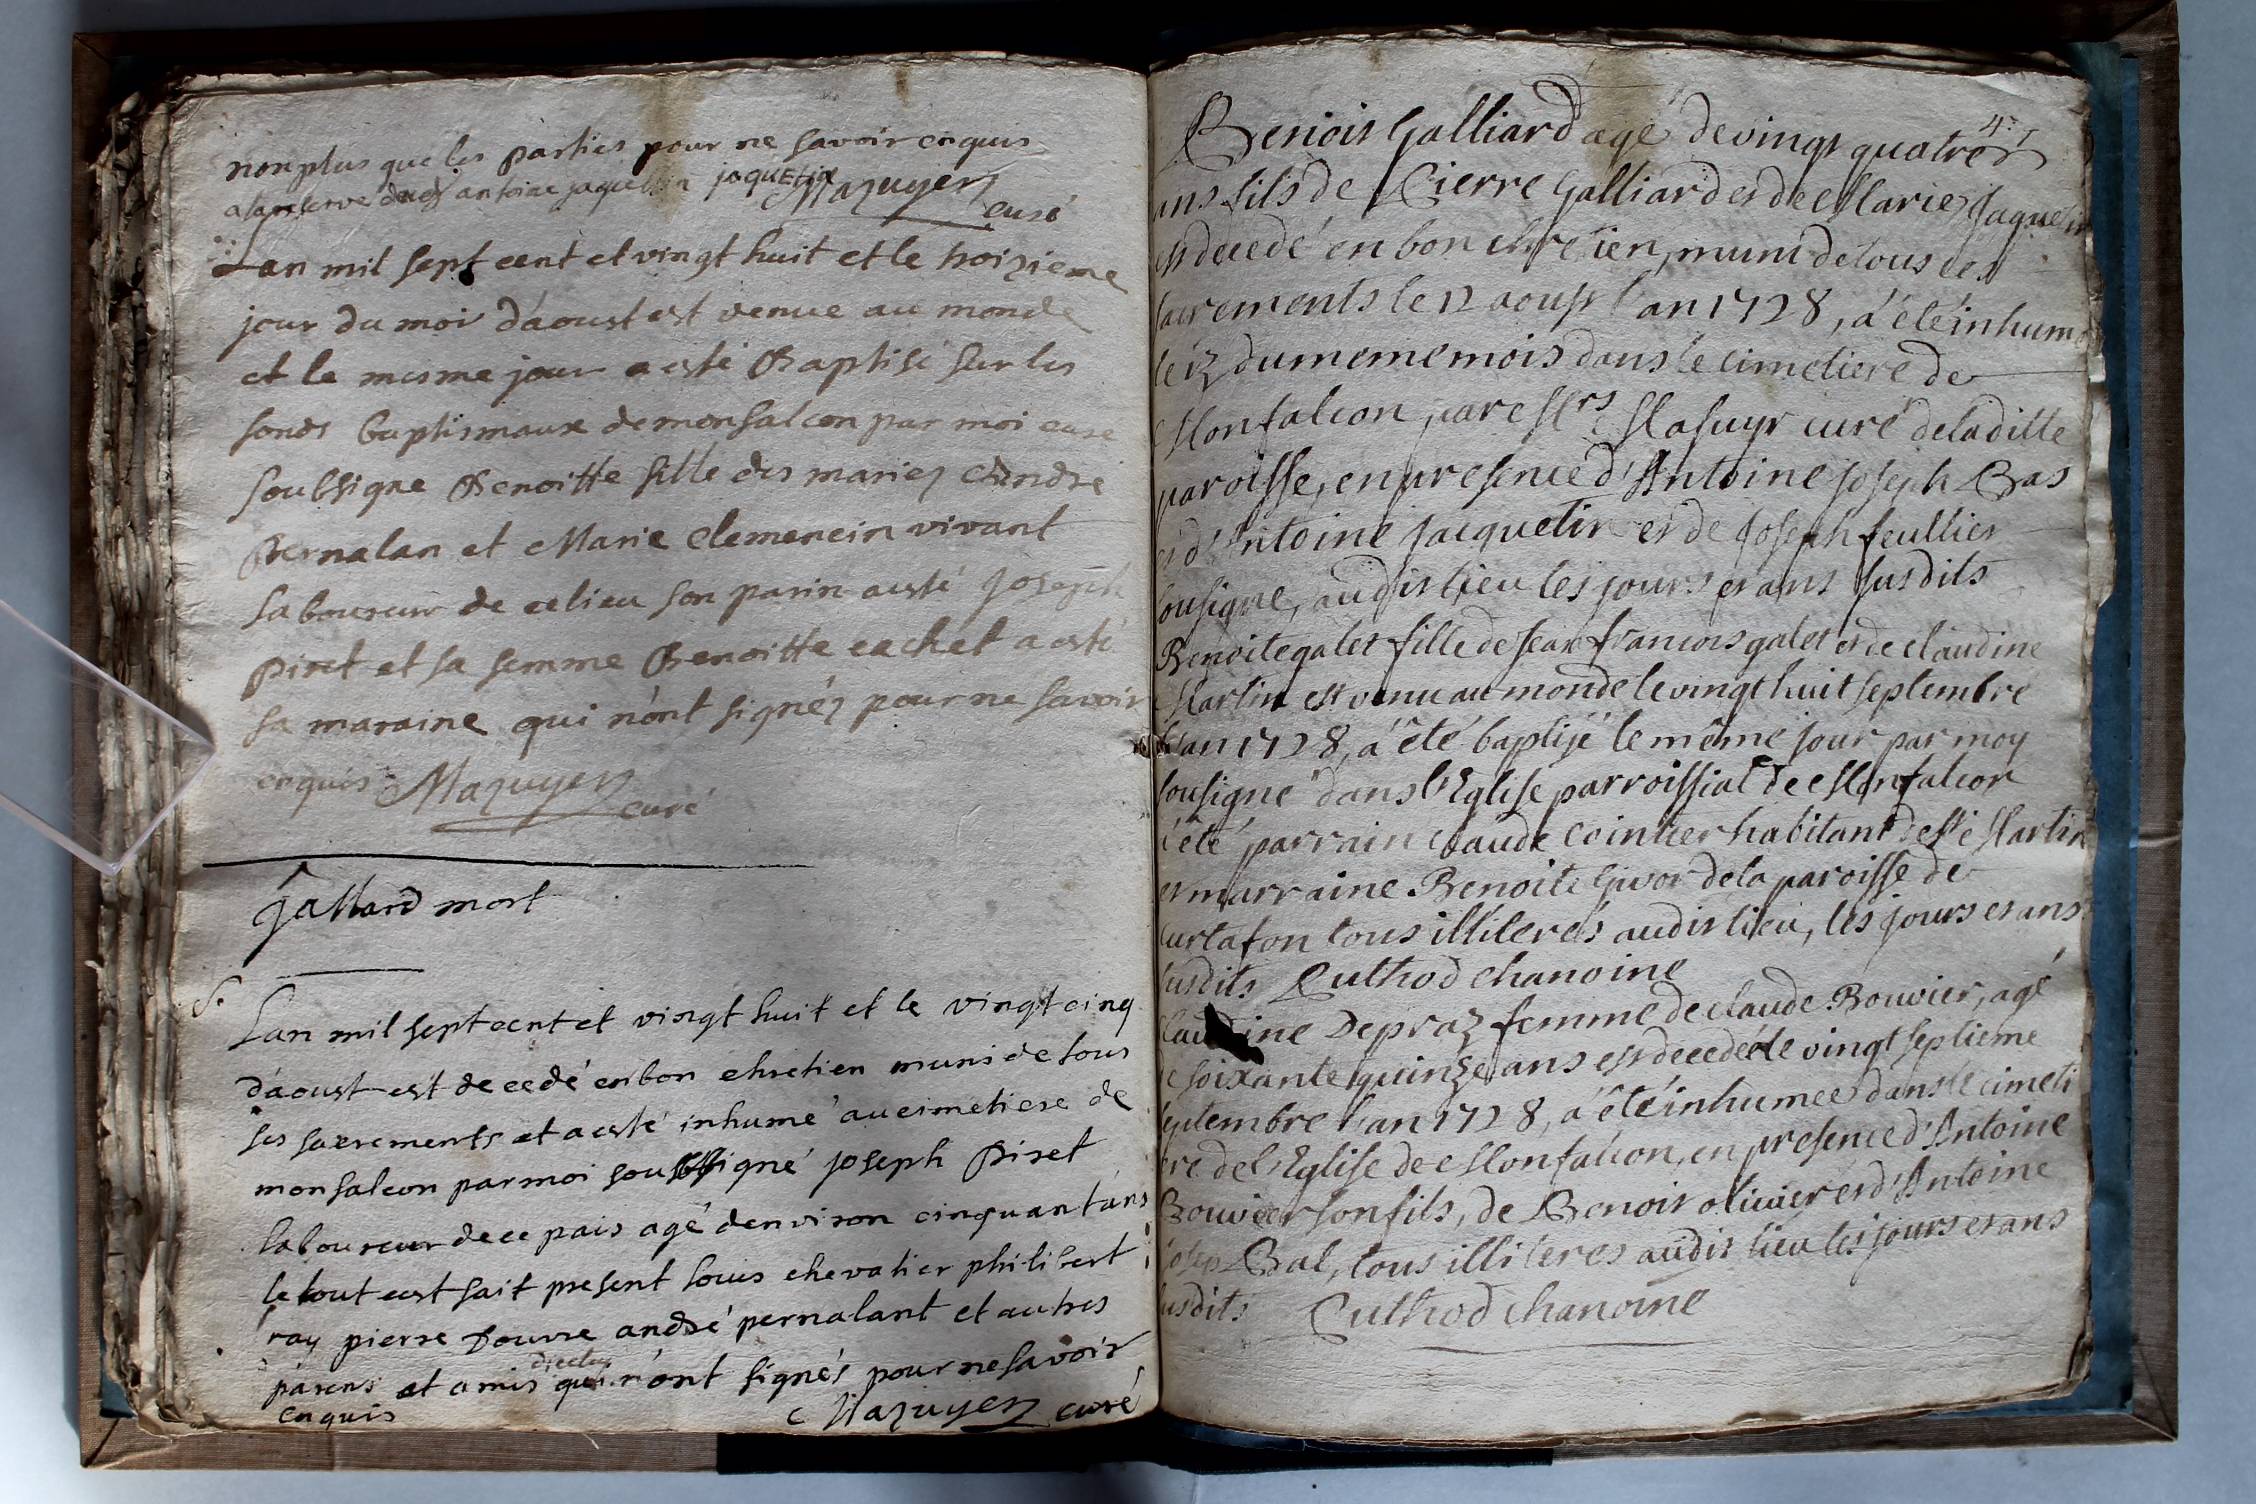 non plus que les parties pour ne savoir enquis
a la reserve antoine jaquetin jaquetin Mazuyer
curé
Lan mil sept cent et vingt huit et le troizieme
jour du moir d'aoust est venue au monde
et le mesme jour a esté Baptisé sur les
fonds baptismaux de monfalcon par moi curé
soubsigne Benoitte fille des mariez Andre
Bernalan et Marie Clemencin vivant
laboureur de ce lieu son parin a esté joseph
Piret et sa femme Benoitte cachet a esté
sa maraine qui n'ont signéz pour ne savoir
enquis Mazuyer
curé
Gallard mort
S.
Lan mil sept cent et vingt huit et le vingt cinq
d'aoust est decedé en bon chretien muni de tous
ses sacrements et a esté inhumé au cimetiere de
monfalcon par moi soubsigné joseph Piret
laboureur de ce pais agé denviron cinquant'ans
le tout est fait present louis chevalier philibert
ray pierre Douvre andsé pernalant et autres
parens et amis qui n'ont signés pour ne savoir
enquis Mazuyer curé
4.
Benoit Galliard agé de vingt quatre
ans fils de Pierre Galliard et de Marie Jaquetin
est decedé en bon chretien, muni de tous les
sacrements le 12 aoust l'an 1728, á été inhumé
le 13 du meme mois dans le cimetiere de
Monfalcon, par Mrs Masuyr curé de la ditte
paroisse, en presence d'Antoine joseph Bas
et d'Antoine Jacquetin et de Joseph feullier
sousigne, audit lieu les jours et ans susdits
Benoite galet fille de jean francois galet et de claudine
Martin est venu au monde le vingt huit septembre
l'an 1728, á été baptisé le même jour par moy
sousigné dans l'Eglise parroissial de Monfalcon
á été parrain claude cointier habitant de st Martin
et marraine Benoite Givor de la paroisse de
curtafon tous illiterés audit lieu, les jours et ans
susdits Cuthod chanoine
Claudine Depraz femme de claude Bouvier, agé
de soixante quinze ans est decedée le vingt septieme
septembre l'an 1728, á été inhumee dans le cimeti
ere de l'Eglise de Monfalcon, en presence d'Antoine
Bouvier son fils, de Benoit olivier et d'Antoine
josep Bal, tous illiteres audit lieu les jours et ans
susdits Cuthod chanoine